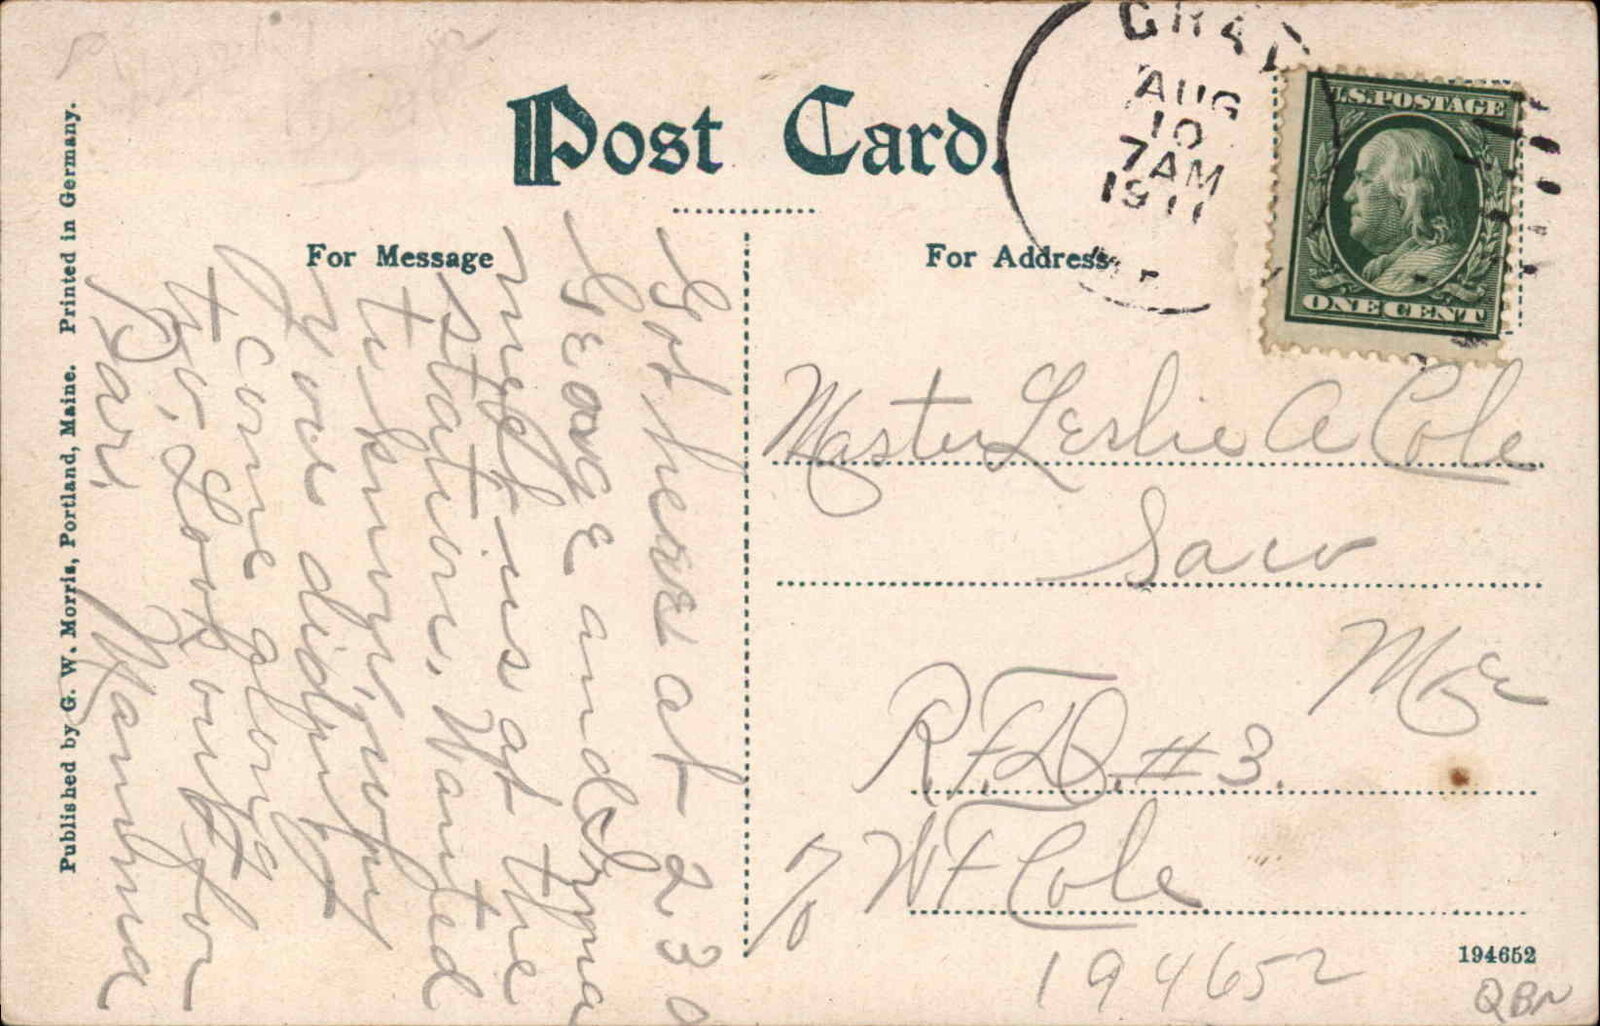 Post Card.
For Message
For Address
GRAY
AUG
10
7 AM
1911
U.S. POSTAGE
ONE CENT
Got here at 230
George and Irma
met us at the
station. Wanted
to know why
you didn't
come along
to. Look out for
Dad. Mamma
Master Leslie A Cole
Saco
Me
R.F.D. #3.
c/o W F Cole
194652
194652
QBN
Published by G. W. Morris, Portland, Maine. Printed in Germany.